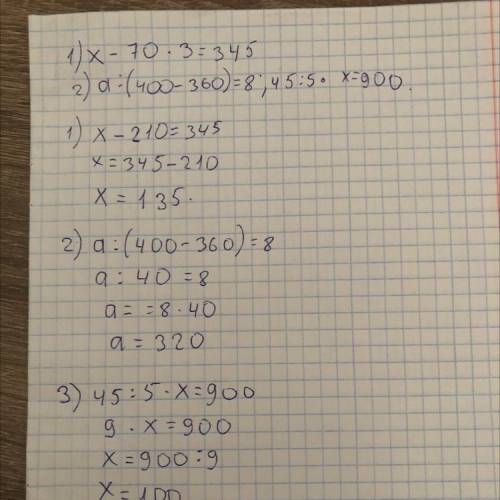 1) x - 70 · 3 = 345
2) a : (400 - 360) = 8; 45 : 5 · x = 900.
1) x - 210 = 345
x = 345 - 210
x = 135.
2) a : (400 - 360) = 8
a : 40 = 8
a = = 8 · 40
a = 320
3) 45 : 5 · x = 900
9 · x = 900
x = 900 : 9
x = 100